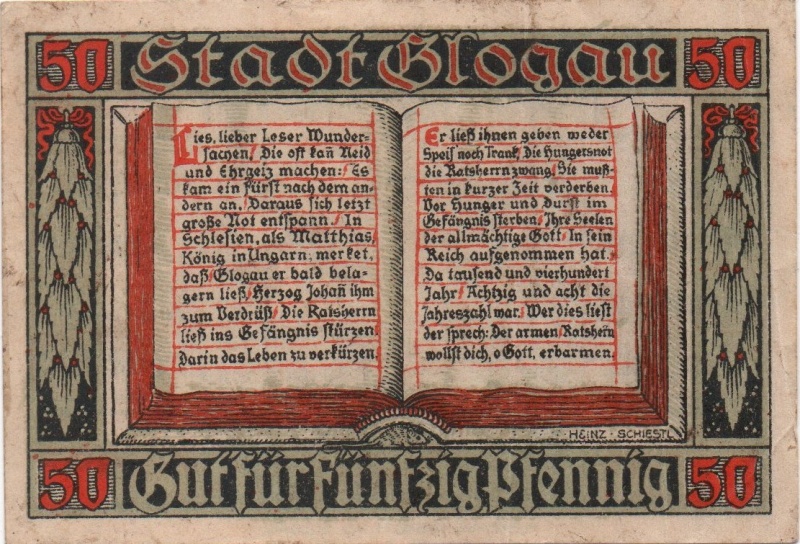 50 Stadt Glogau 50
Lies, lieber Leser Wunder-
sachen, Die oft kañ Neid
und Ehrgeiz machen: Es
kam ein Fürst nach dem an-
dern an. Daraus sich letzt
große Not entspann. In
Schlesien, als Matthias,
König in Ungarn, merket,
daß Glogau er bald bela-
gern ließ, Herzog Johañ ihm
zum Verdrüß, Die Ratsherrn
ließ ins Gefängnis stürzen,
Darin das Leben zu verkürzen.
Er ließ ihnen geben weder
Speis noch Trank, Die Hungersnot
die Ratsherrn zwang. Sie muß-
ten in kurzer Zeit verderben.
Vor Hunger und Durst im
Gefängnis sterben, Ihre Seelen
der allmächtige Gott, In sein
Reich aufgenommen hat.
Da tausend und vierhundert
Jahr, Achtzig und acht die
Jahreszahl war. Wer dies liest
der sprech: Der armen, Ratsherrn
wollst dich, o Gott, erbarmen.
HEINZ · SCHIESTL
50 Gut für Fünfzig Pfennig 50